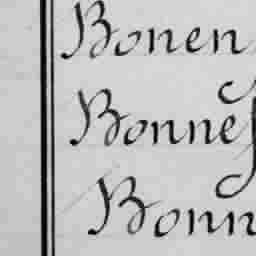 Bonen
Bonnef
Bonn